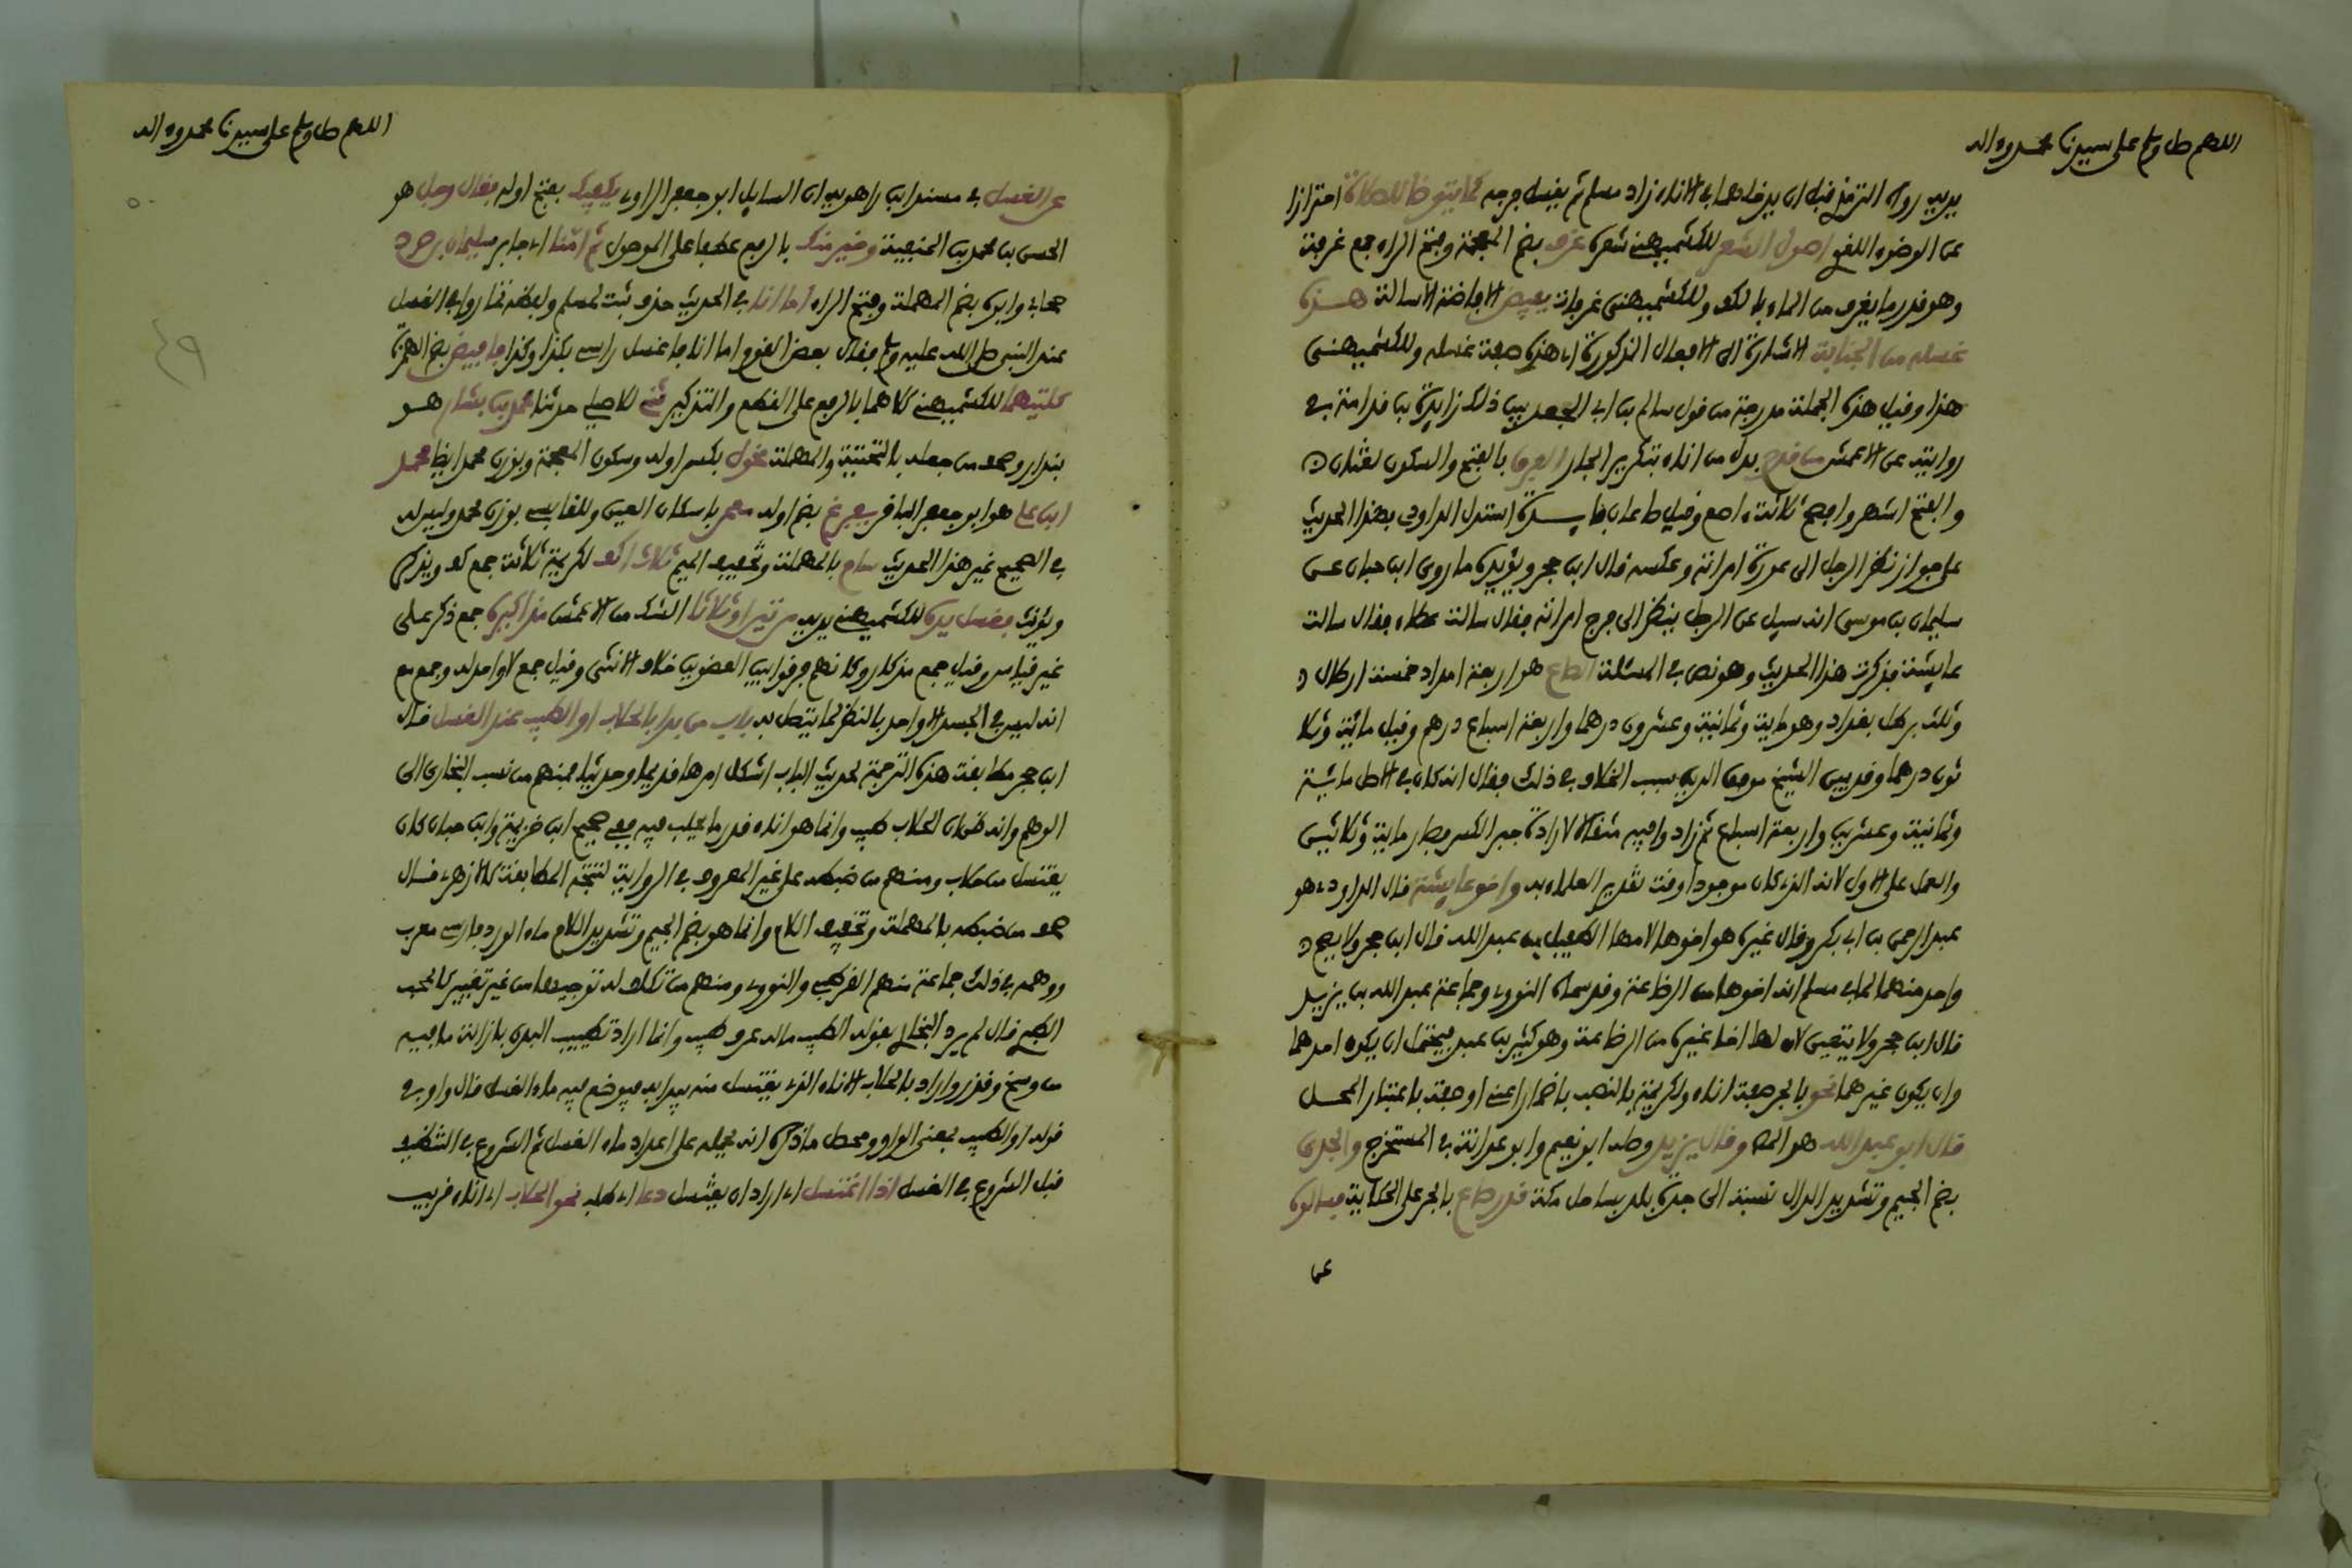 اللهم صل وسلم على سيدنا محمد وءاله
يديه رواه الترمذي قبل ان يدخلهما في الاناء زاد مسلم ثم يغسل فرجه كما يتوضا للصلاة احترازا
عن الوضوء اللغوي اصول الشعر للكشميهني شعره غرف بضم المعجمة وفتح الراء جمع غرفة
وهو قدر ما يغرف من الماء بالكف وللكشميهني غرفات يفيض الافاضة الاسالة هذه
غسله من الجنابة الاشارة الى الافعال المذكورة اي هذه صفة غسله وللكشميهنى
هذا وقيل هذه الجملة مدرجة من قول سالم بن ابي الجعد بين ذلك زايدة بن قدامة في
روايته عن الاعمش من قدح بدل من اناء بتكرير الجار الفرق بالفتح والسكون لغتان
والفتح اشهر وافصح ثلاثة ءاصع وقيل صاعان فايدة استدل الداودي بهذا الحديث
على جواز نظر الرجل الى عورة امراته وعكسه قال ابن حجر ويؤيده ما روى ابن حبان عن
سليمان بن موسى انه سيل عن الرجل ينظر الى فرج امراته فقال سالت عطاء فقال سالت
عايشة فذكرت هذا الحديث وهو نص في المسئلة الصاع هو اربعة امداد خمسة ارطال و
وثلث برطل بغداد وهو ماية وثمانية وعشرون درهما واربعة اسباع درهم وقيل ماية وثلا
ثون درهما وقد بين الشيخ موفق الدين سبب الخلاف في ذلك فقال انه كان في الاصل ماية
وثمانية وعشرين واربعة اسباع ثم زادوا فيه مثقالا لارادة جبر الكسر فصار ماية وثلاثين
والعمل على الاول لانه الذي كان موجودا وقت تقدير العلماء به واخو عايشة قال الداودي هو
عبد الرحمن بن ابي بكر وقال غيره هو اخوها لامها الطفيل بن عبد الله قال ابن حجر ولا يصح
واحد منهما لما في مسلم انه اخوها من الرضاعة وقد سماه النووي وجماعة عبد الله بن يزيد
قال ابن حجر ولا يتعين لان لها اخا غيره من الرضاعة وهو كثير بن عبيد فيحتمل ان يكون احدهما
وان يكون غيرهما نحو بالجر صفة اناء ولكريمة بالنصب باضمار اعني او صفة باعتبار المحل
قال ابو عبد الله هو المص وقال يزيد وصله ابو نعيم وابو عوانة في المستخرج والجدى
بضم الجيم وتشديد الدال نسبة الى جدة بلد بساحل مكة قدر صاع بالجر على الحكاية فسالوه
عن
اللهم صل وسلم على سيدنا محمد وءاله
عن الغسل في مسند ابن راهويه ان السايل ابو جعفر الراوي يكفيك بفتح اوله فقال رجل هو
الحسن بن محمد بن الحنفية وخير منك بالرفع عطفا على الموصول ثم امنا اي جابر سليمان بن صرد
صحابي وابوه بضم المهملة وفتح الراء اما انا في الحديث حذف ثبت لمسلم ولفظه تماروا في الغسل
عند النبي صلى الله عليه وسلم فقال بعض القوم اما انا فاغسل راسي بكذا وكذا فافيض بضم الهمزة
كلتيهما للكشميهني كلاهما بالرفع على القطع والتذكير حدثني للاصيلي حدثنا محمد بن بشار هو
بندار وصحف من جعله بالتحتية والمهملة مخول بكسر اوله وسكون المعجمة وبوزن محمد ايضا محمد
ابن علي هو ابو جعفر الباقر يفرغ بضم اوله معمر باسكان العين وللقابسي بوزن محمد وليس له
في الصحيح غير هذا الحديث سام بالمهملة وتخفيف الميم ثلاث اكف لكريمة ثلاثة جمع كف ويذكر
ويؤنث فغسل يده للكشميهني يديه مرتين او ثلاثا الشك من الاعمش مذاكيره جمع ذكر على
غير قياس وقيل جمع مذكار وكانهم فرقوا بين العضو بين خلاف الانثى وقيل جمع لا واحد له وجمع مع
انه ليس في الجسد الا واحد بالنظر لما يتصل به باب من بدا بالحلاب او الطيب عند الغسل قال
ابن حجر مطابقة هذه الترجمة لحديث الباب اشكل امرها قديما وحديثا فمنهم من نسب البخاري الى
الوهم وانه ظن ان الحلاب طيب وانما هو اناء قدر ما يحلب فيه ففي صحيح ابن خزيمة وابن حبان كان
يغتسل من حلاب ومنهم من ضبطه على غير المعروف في الرواية لتتجه المطابقة كالازهري قال
صحف من ضبطه بالمهملة وتخفيف اللام وانما هو بضم الجيم وتشديد اللام ماء الورد فارسي معرب
ووهمه في ذلك جماعة منهم القرطبي والنووي ومنهم من تكلف له توجيها من غير تغيير كالمحب
الطبري قال لم يرد البخاري بقوله الطيب ماله عرف طيب وانما اراد تطييب البدن بازالة ما فيه
من وسخ وقذر واراد بالحلاب الاناء الذي يغتسل منه يبدا به فيوضع فيه ماء الغسل قال واو في
قوله او الطيب بمعنى الواو ومحصل ما ذكره انه يحمله على اعداد ماء الغسل ثم الشروع في التنظيف
قبل الشروع في الغسل اذا اغتسل اي اراد ان يغتسل دعا اي طلب نحو الحلاب اي اناء قريب